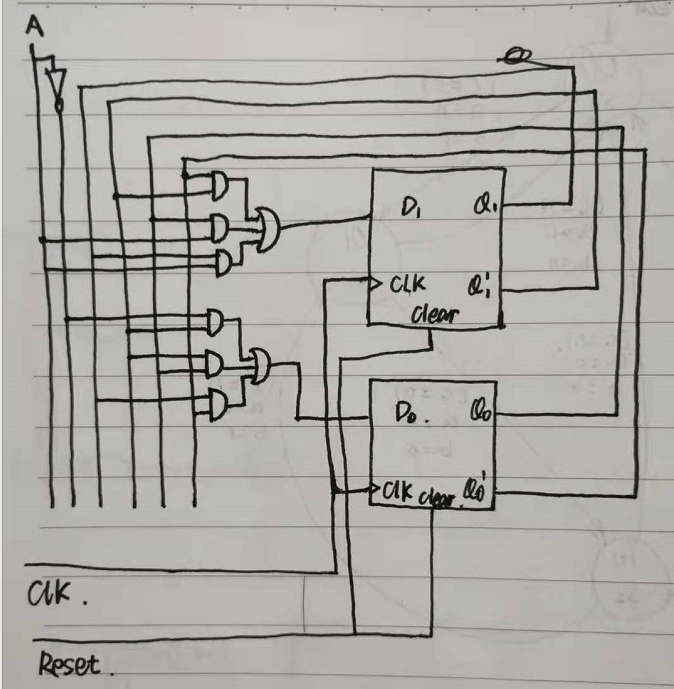 A
D₁ Q₁
CLK Q₁'
Clear
D₀. Q₀
CLK clear. Q₀'
ClK.
Reset.